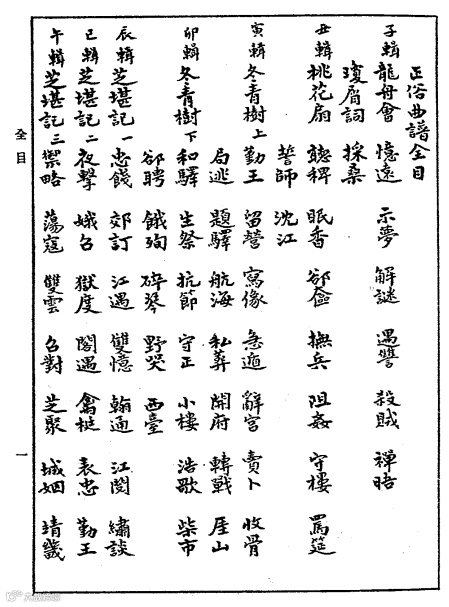 正俗曲譜全目
子輯龍舟會 憶遠 示夢 解謎 遇讐 殺賊 禪晤
瓊屑詞 採桑
丑輯桃花扇 聽稗 眠香 卻奩 撫兵 阻姦 守樓 罵筵
誓師 沈江
寅輯冬青樹上 勤王 留營 寫像 急遁 辭官 賣卜 收骨
局逃 題驛 航海 私葬 開府 轉戰 厓山
卯輯冬青樹下 和驛 生祭 抗節 守正 小樓 浩歌 柴市
卻聘 餓殉 碎琴 野哭 西臺
辰輯芝堪記一 忠餞 郊訂 江遇 雙憶 翰通 江閱 繡談
巳輯芝堪記二 夜擊 娥召 獄度 閣遇 禽梃 表忠 勤王
午輯芝堪記三 禦略 蕩寇 雙雲 召對 芝聚 城姻 靖畿
全目
一